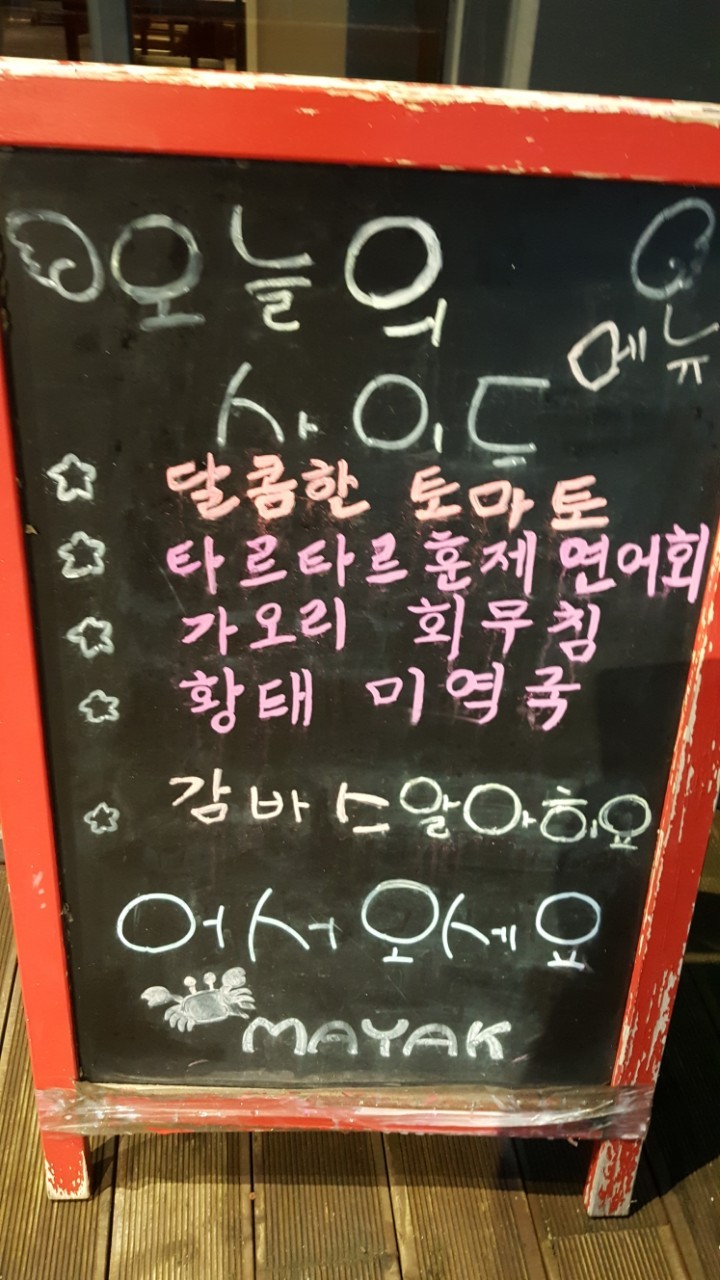 오늘의
사이드
메뉴
달콤한 토마토
타르타르훈제연어회
가오리 회무침
황태 미역국
감바스알아히요
어서오세요
MAYAK